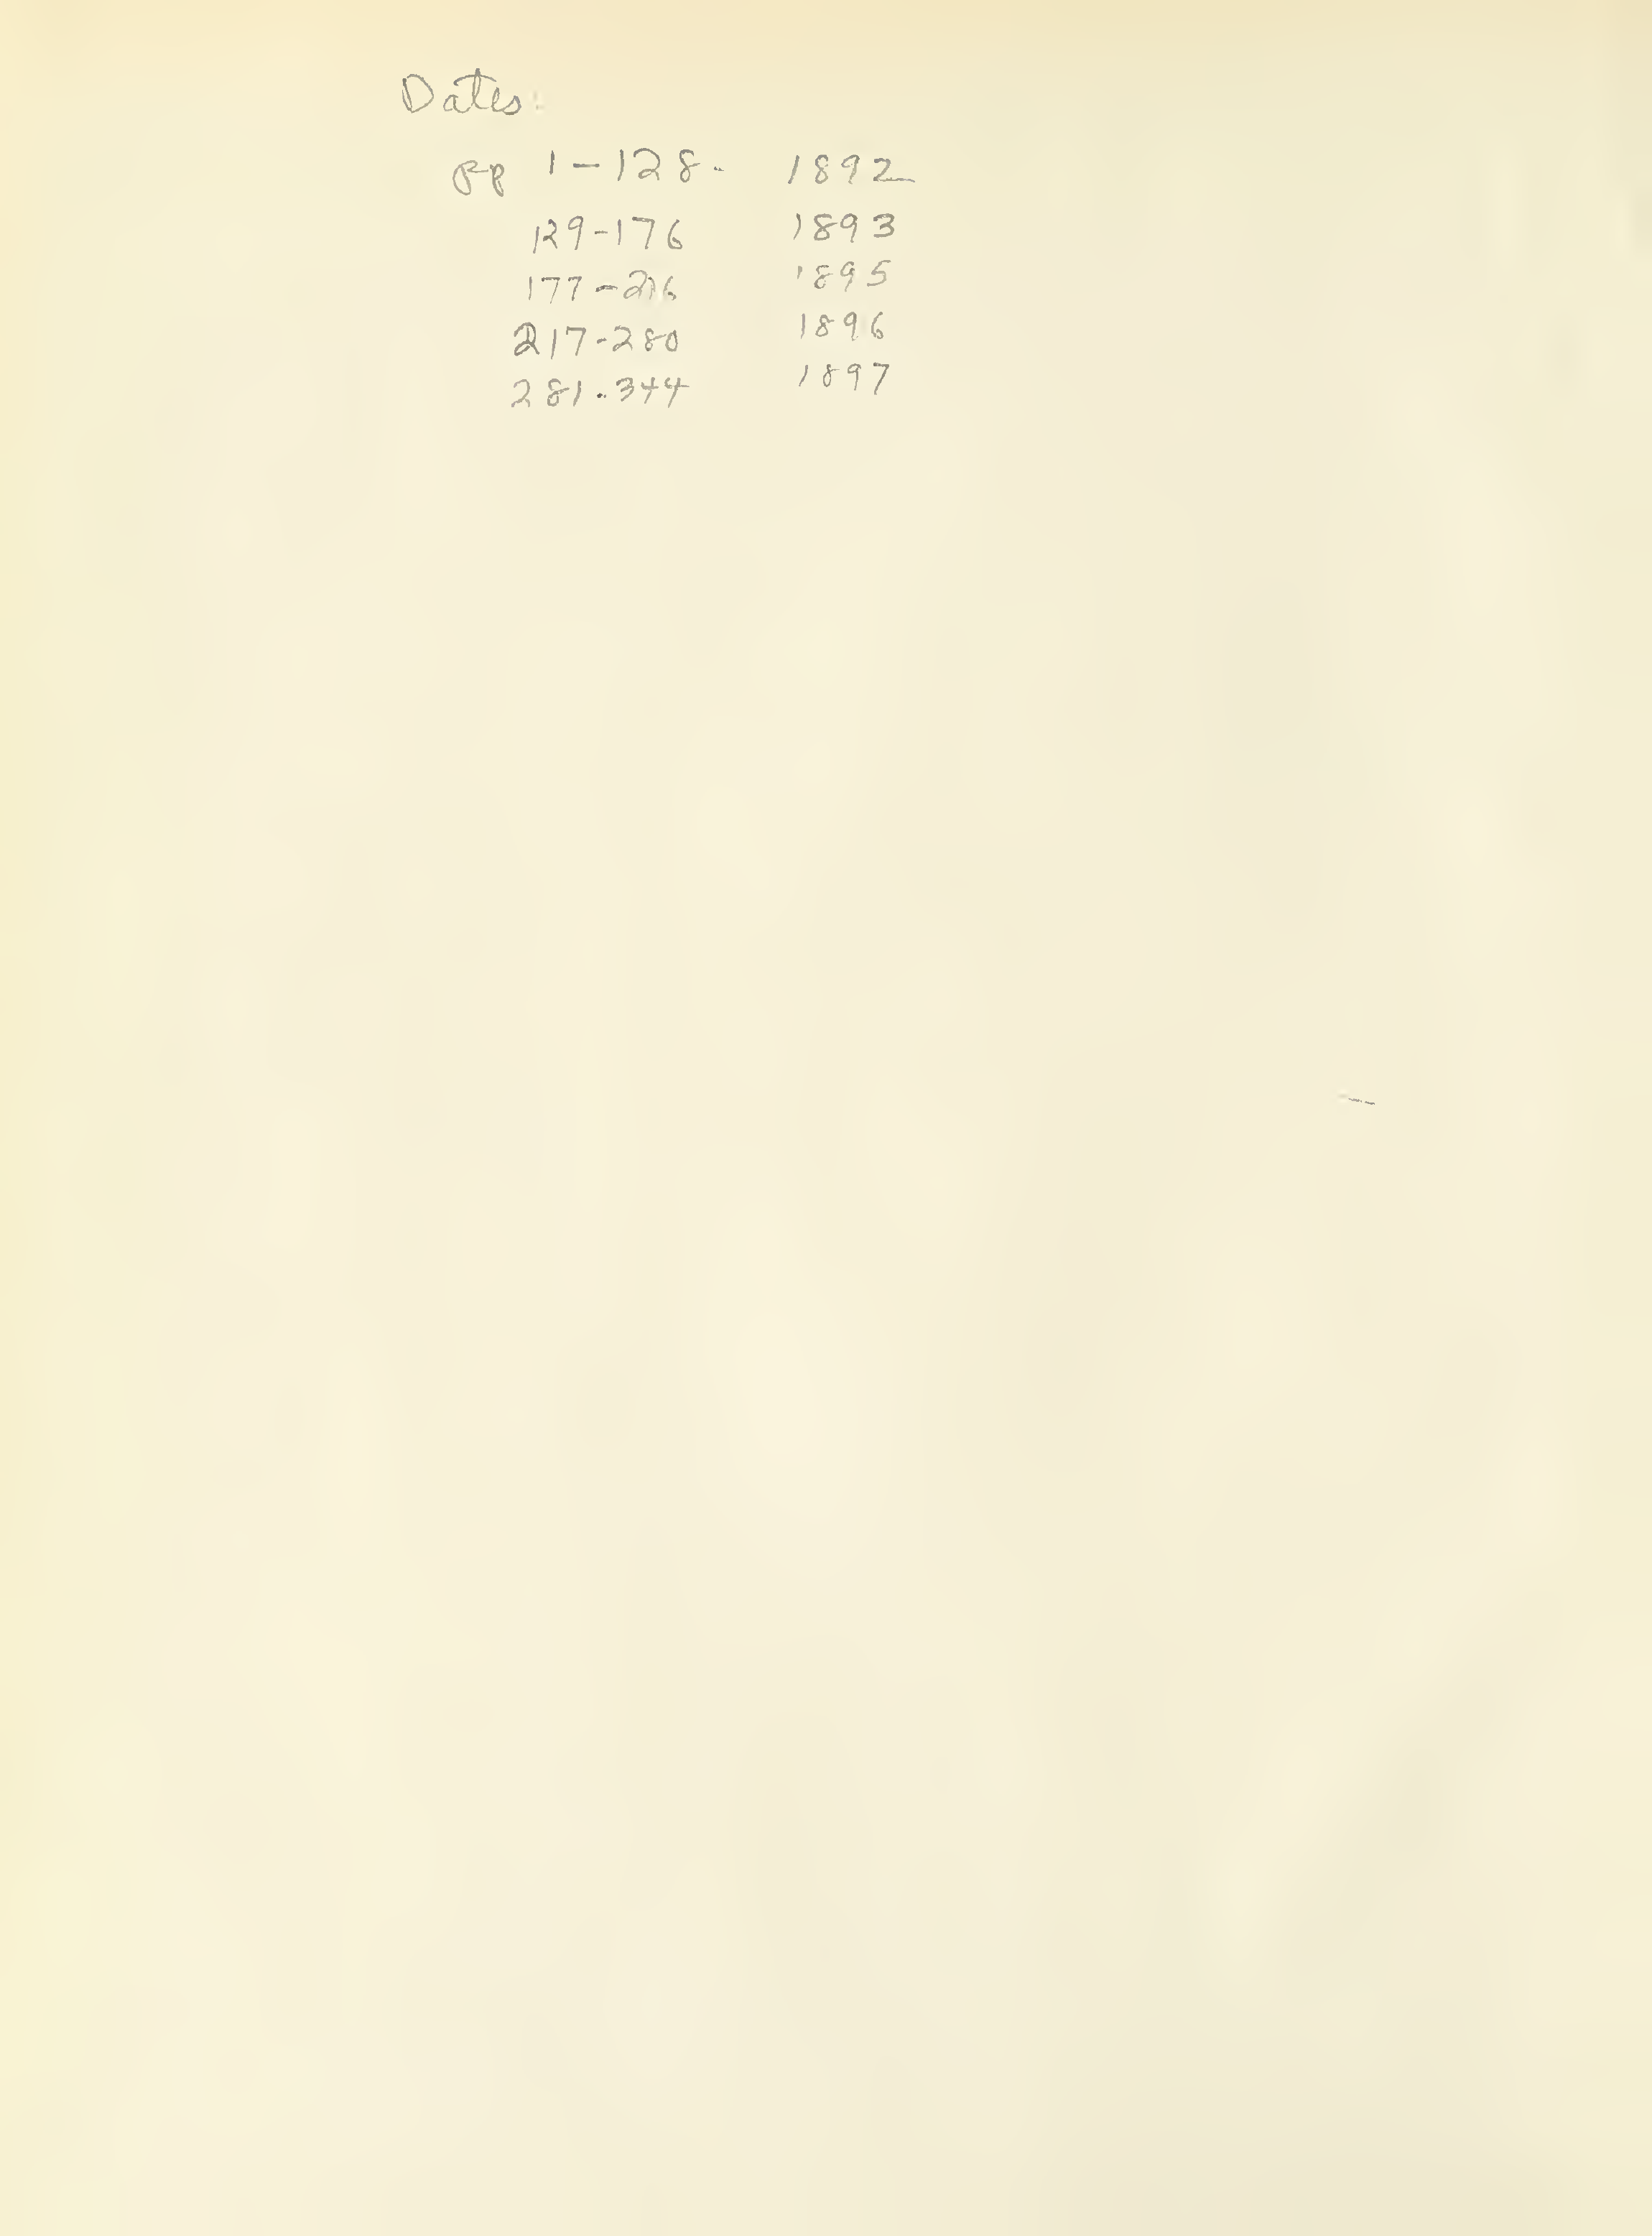 Dates:
pp 1-128. 1892
129-176 1893
177-216 1895
217-280 1896
281.344 1897